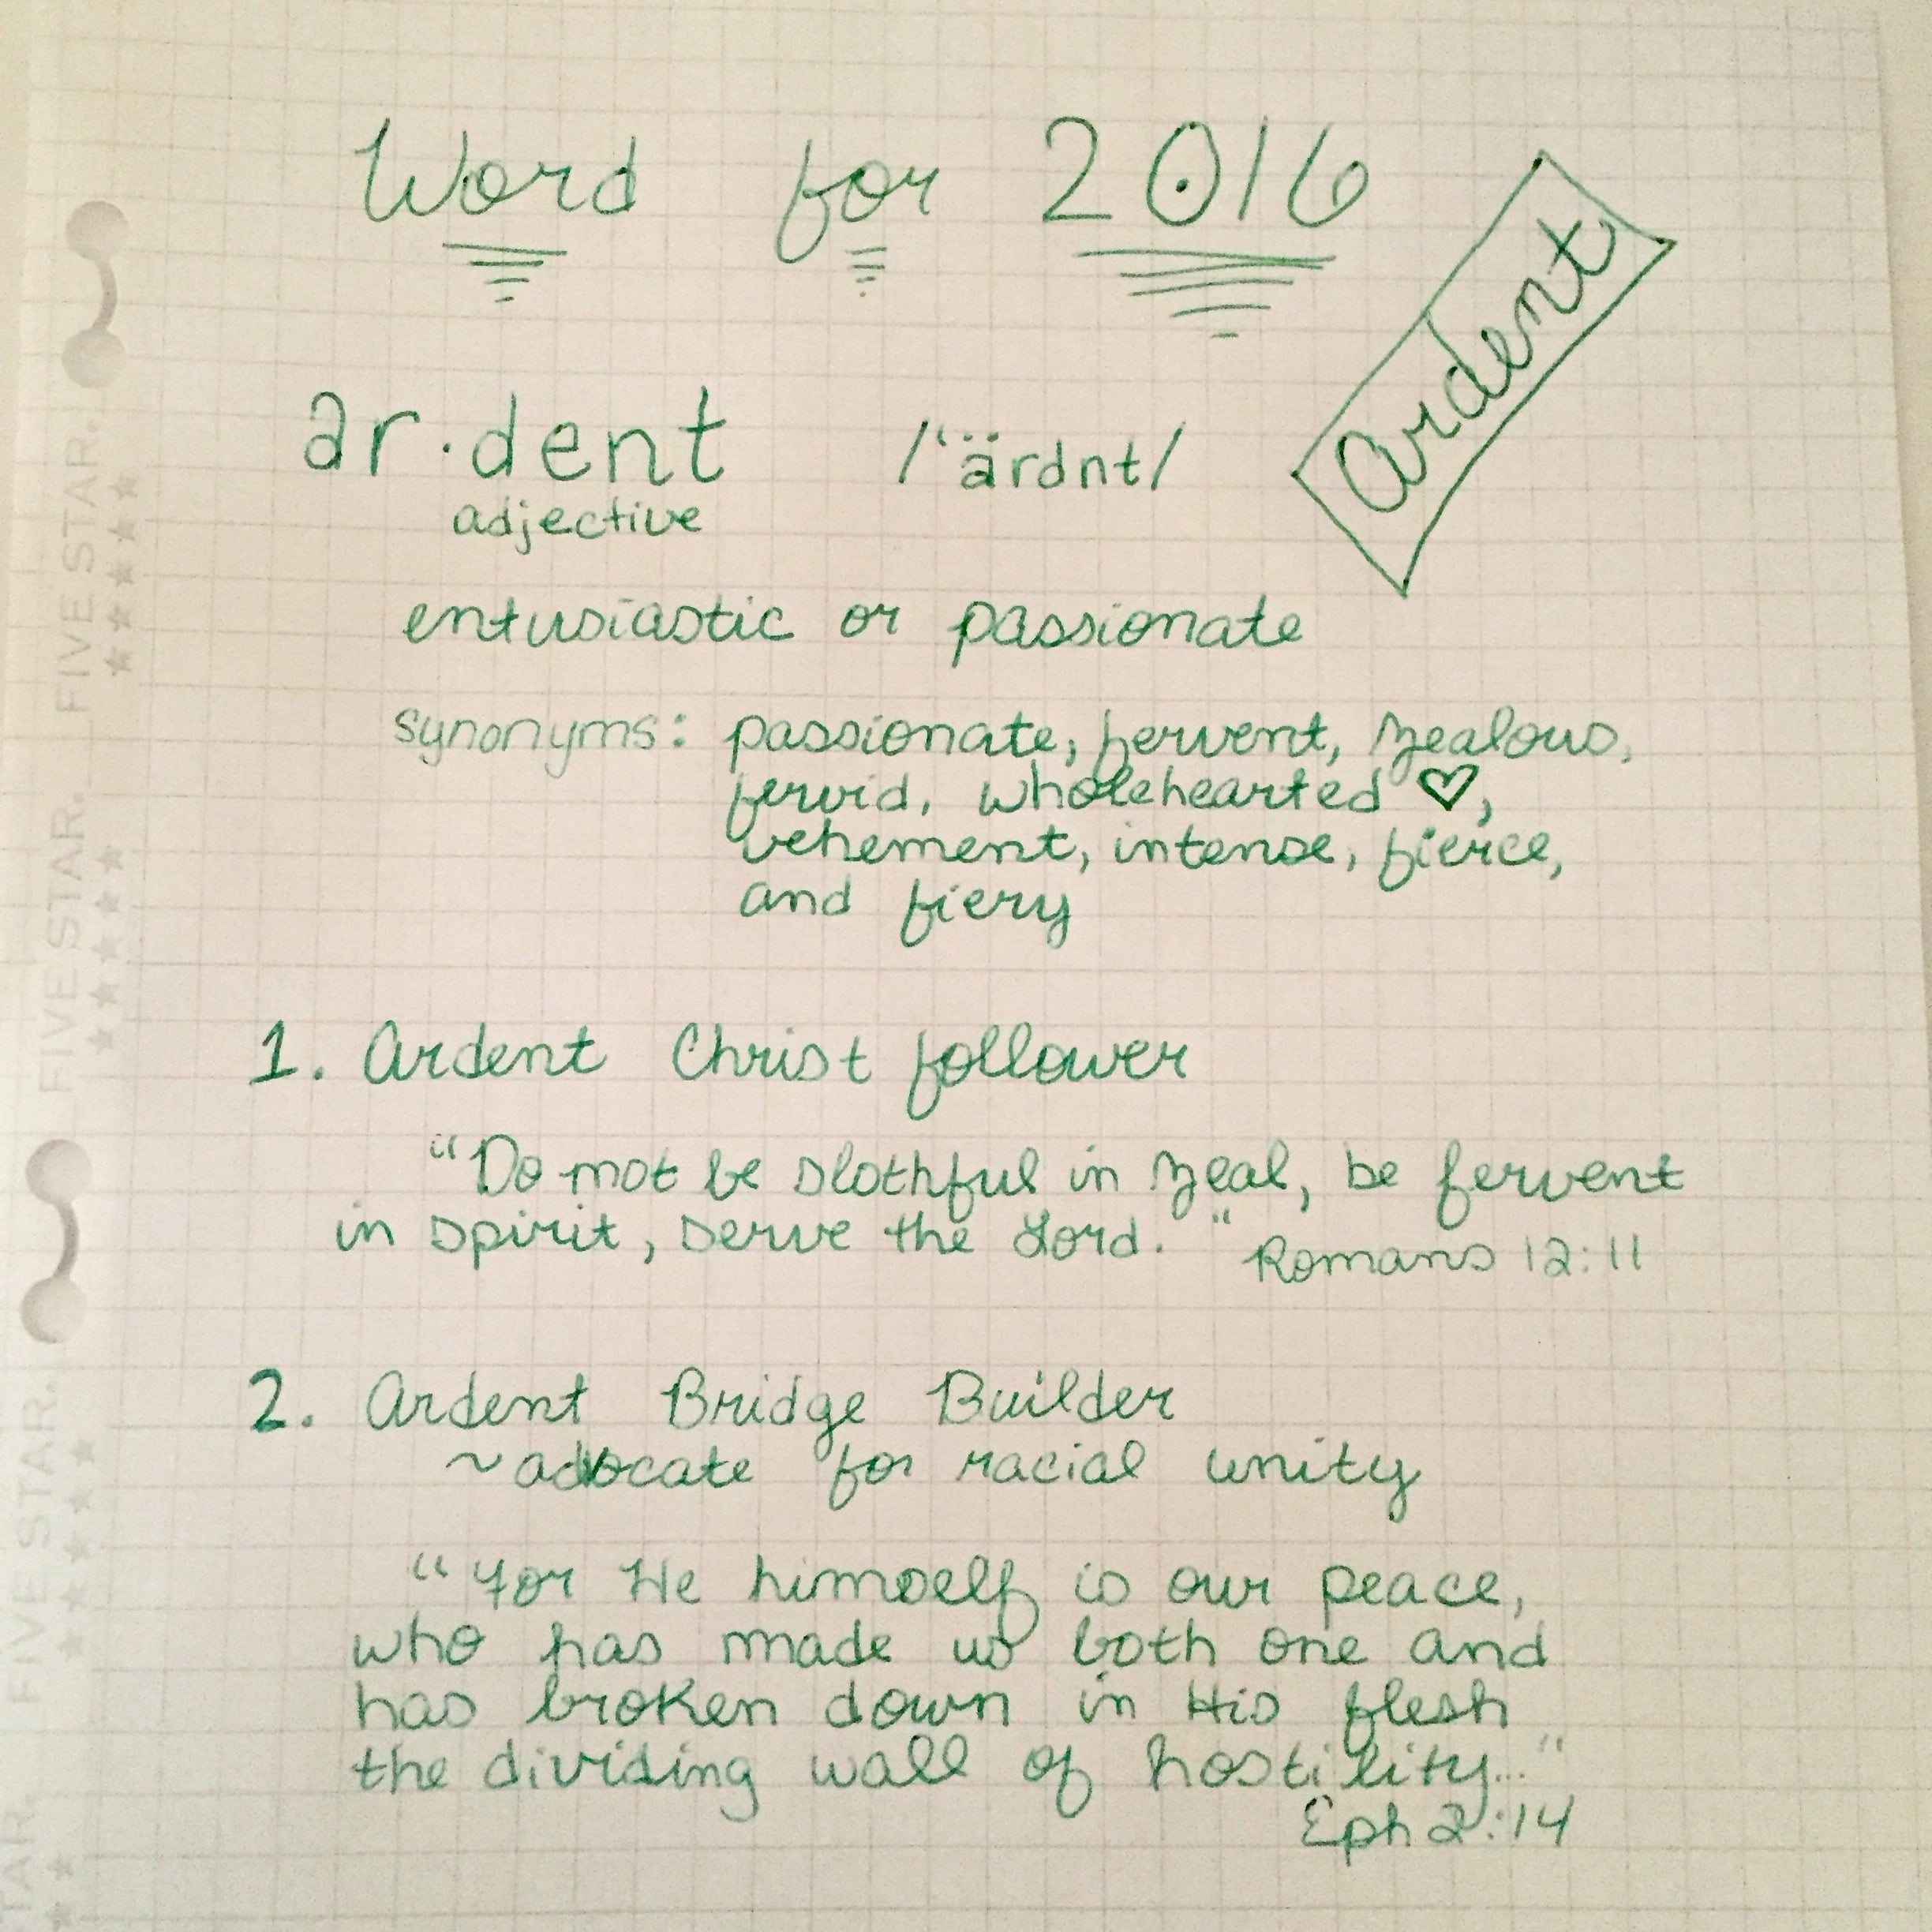 Word for 2016
Ardent
ar·dent /ˈärdnt/
adjective
entusiastic or passionate
synonyms: passionate, fervent, zealous,
fervid, wholehearted ♡,
vehement, intense, fierce,
and fiery
1. Ardent Christ follower
"Do not be slothful in zeal, be fervent
in spirit, serve the Lord." Romans 12:11
2. Ardent Bridge Builder
~ advocate for racial unity
"For He himself is our peace,
who has made us both one and
has broken down in His flesh
the dividing wall of hostility..."
Eph 2:14
FIVE STAR.
FIVE STAR.
FIVE STAR.
STAR.